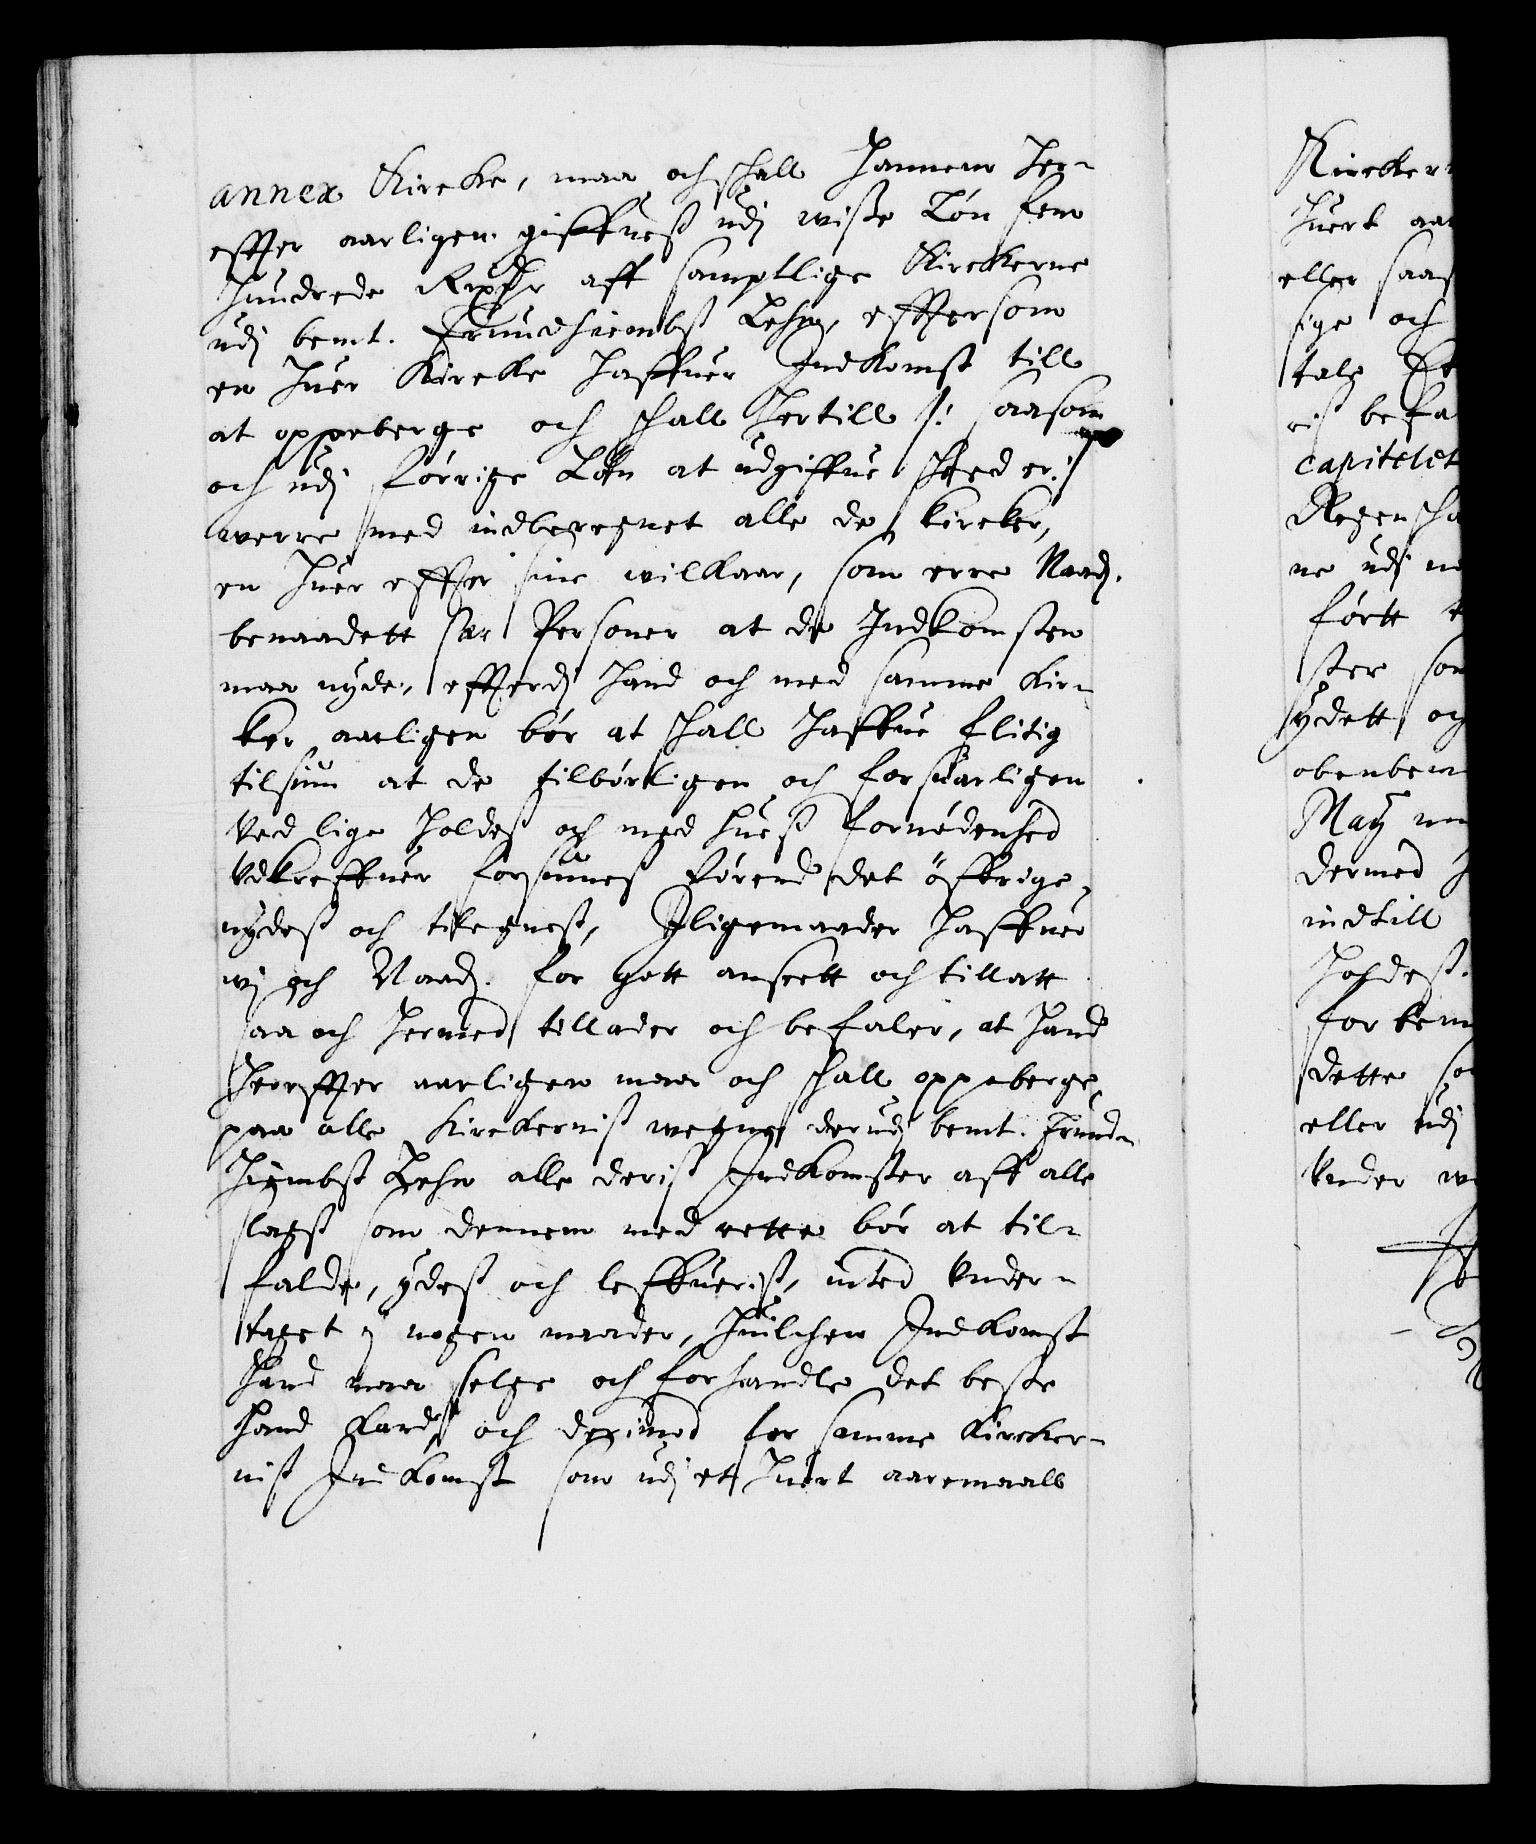 annex Kircke, maa och schall hannem her-
effter aarligen giffuess udj wisse Løn fem
hundrede Rixdlr aff samptlige Kirckerne
udj bemt. Trundhiembss Lehn, effter som
en huer Kircke haffuer Indkomst till
at oppeberge och schall hertill /: saasom
och udj förrige Løn at udgiffue scheed er :/
werre med indberegnet alle de kircker,
en huer effter sine wilkaar, som erre Naad.
benaadett sær Personer at de Indkomsten
maa nyde, effterdj hand och med samme Kir-
ker aarligen bør at schall haffue flitig
tilsiun at de tilbørligen och forsuarligen
ved lige holdess och med huess fornødenhed
Vdkreffuer forsiunes førend det öffrige,
nydess och tilegnest, Iligemaader haffuer
wj och Naad. for gott anseett och tillatt
saa och hermed tillader och befaler, at hand
hereffter aarligen maa och schall oppeberge
paa alle Kirckerniss wegne derudj bemt. Trund-
hiembss Lehn alle deriss Indkomster aff alle
slags som dennem med rette bør at til-
falde, ydess och leffueriss, inted Vnder-
taget j nogen maader, huilchen Indkomst
hand maa selge och forhandle det beste
hand kand, och derimod for samme Kircker-
niss Indkomst som udj et huert aaremaall
Kircker
huert aar
eller saas
sige och
tale
iss befa
capitelet
Regenscha
ne udj
førtt
ster som
ydett og
obenbem
May
dermed
indtill
holdess.
for
dette so
eller udj
Vnder